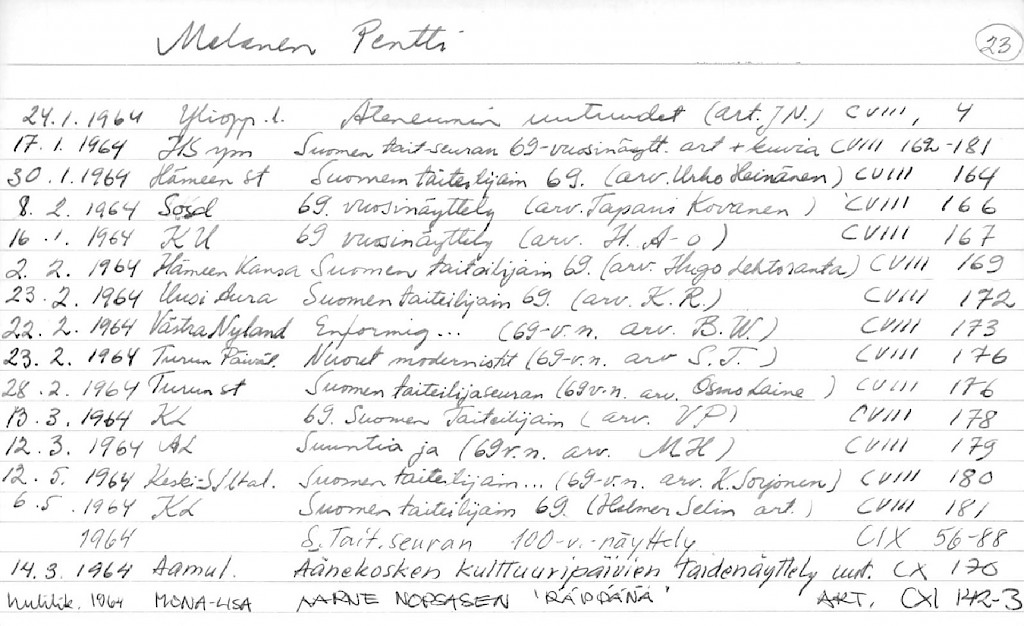 Melanen Pentti 23
24.1.1964 Yliopp.l. Ateneumin uutuudet (art. JN.) CVIII, 4
17.1.1964 HS ym Suomen tait.seuran 69-vuosinäytt. art + kuvia CVIII 162-181
30.1.1964 Hämeen st Suomen taiteilijain 69. (arv. Urho Heinänen) CVIII 164
8.2.1964 Sosd 69. vuosinäyttely (arv. Tapani Kovanen) CVIII 166
16.1.1964 KU 69 vuosinäyttely (arv. H. A-o) CVIII 167
2.2.1964 Hämeen Kansa Suomen taiteilijain 69. (arv. Hugo Lehtoranta) CVIII 169
23.2.1964 Uusi Aura Suomen taiteilijain 69. (arv. K.R.) CVIII 172
22.2.1964 Västra Nyland Enformig... (69-v.n. arv. B.W.) CVIII 173
23.2.1964 Turun Päiväl. Nuoret modernistit (69-v.n. arv S.T.) CVIII 176
28.2.1964 Turun st Suomen taiteilijaseuran (69v.n. arv. Osmo Laine) CVIII 176
13.3.1964 KL 69. Suomen Taiteilijain (arv. VP) CVIII 178
12.3.1964 AL Suuntia ja (69v.n. arv. MH) CVIII 179
12.5.1964 Keski-S. Iltal. Suomen taiteilijain... (69-v.n. arv. K. Sorjonen) CVIII 180
6.5.1964 KL Suomen taiteilijain 69. (Holmer Selin art.) CVIII 181
1964 S. Tait.seuran 100-v.-näyttely CIX 56-88
14.3.1964 Aamul. Äänekosken kulttuuripäivien taidenäyttely uut. CX 170
huhtik. 1964 MONA-LISA AARNE NOPSASEN 'RÄPPÄNÄ' ART. CXI 142-3